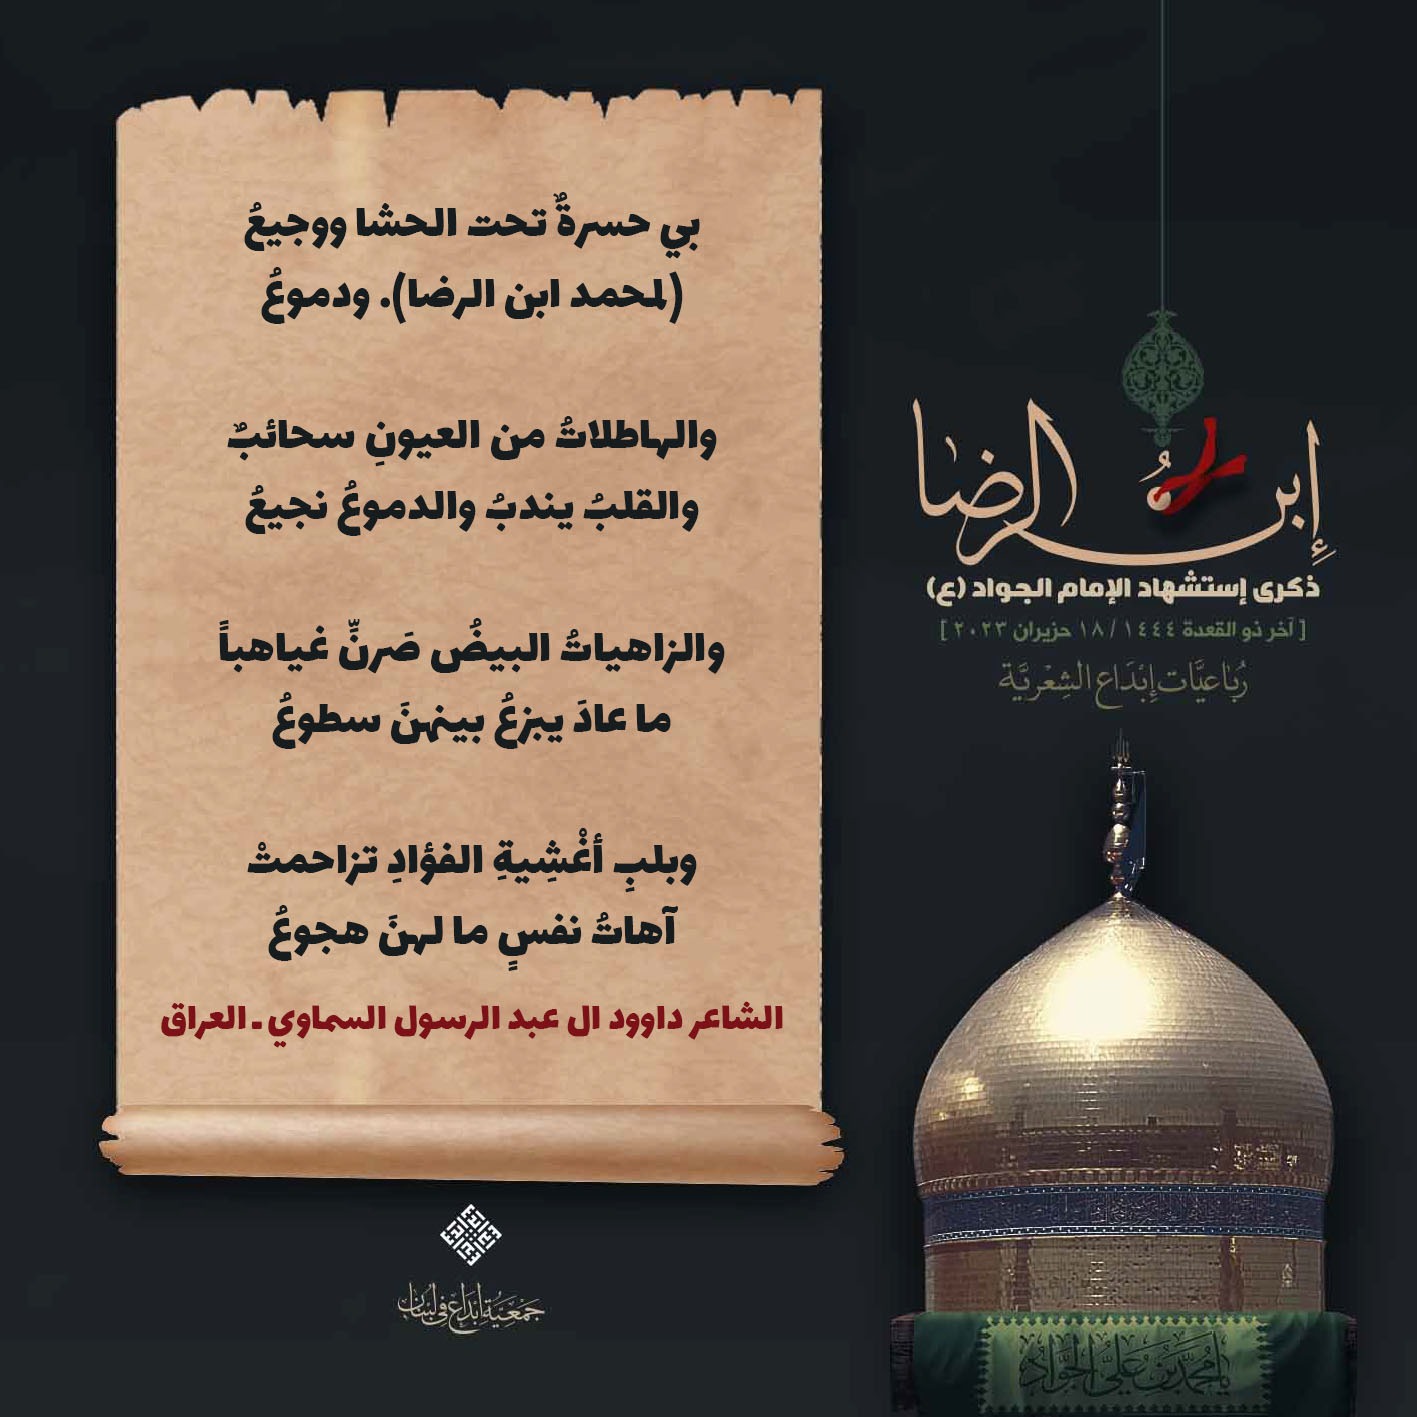 بي حسرةٌ تحت الحشا ووجيعُ
(لمحمد ابن الرضا). ودموعُ
والهاطلاتُ من العيونِ سحائبٌ
والقلبُ يندبُ والدموعُ نجيعُ
والزاهياتُ البيضُ صَرنِّ غياهباً
ما عادَ يبزعُ بينهنَ سطوعُ
وبلبِ أغْشِيةِ الفؤادِ تزاحمتْ
آهاتُ نفسٍ ما لهنَ هجوعُ
الشاعر داوود ال عبد الرسول السماوي - العراق
إبن الرضا
ذكرى إستشهاد الإمام الجواد (ع)
[ آخر ذو القعدة ١٤٤٤ / ١٨ حزيران ٢٠٢٣ ]
رُبَاعيَّات إبْدَاع الشِعْريَّة
جَمْعِيَّة إبْدَاع فِي لُبْنَان
يا مُحَمَّد بن عَلِيّ الجَوَادُ